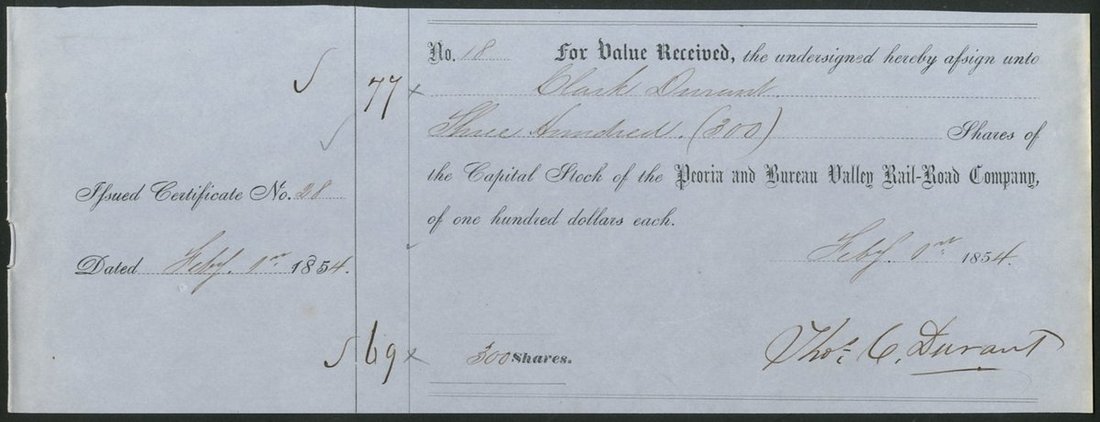 77 x
Issued Certificate No. 28
Dated Feby. 1st 1854.
69 x
No. 18 For Value Received, the undersigned hereby assign unto
Clark Durant
Three Hundred (300) Shares of
the Capital Stock of the Peoria and Bureau Valley Rail-Road Company,
of one hundred dollars each.
Feby. 1st 1854.
300 Shares.
Thos. C. Durant